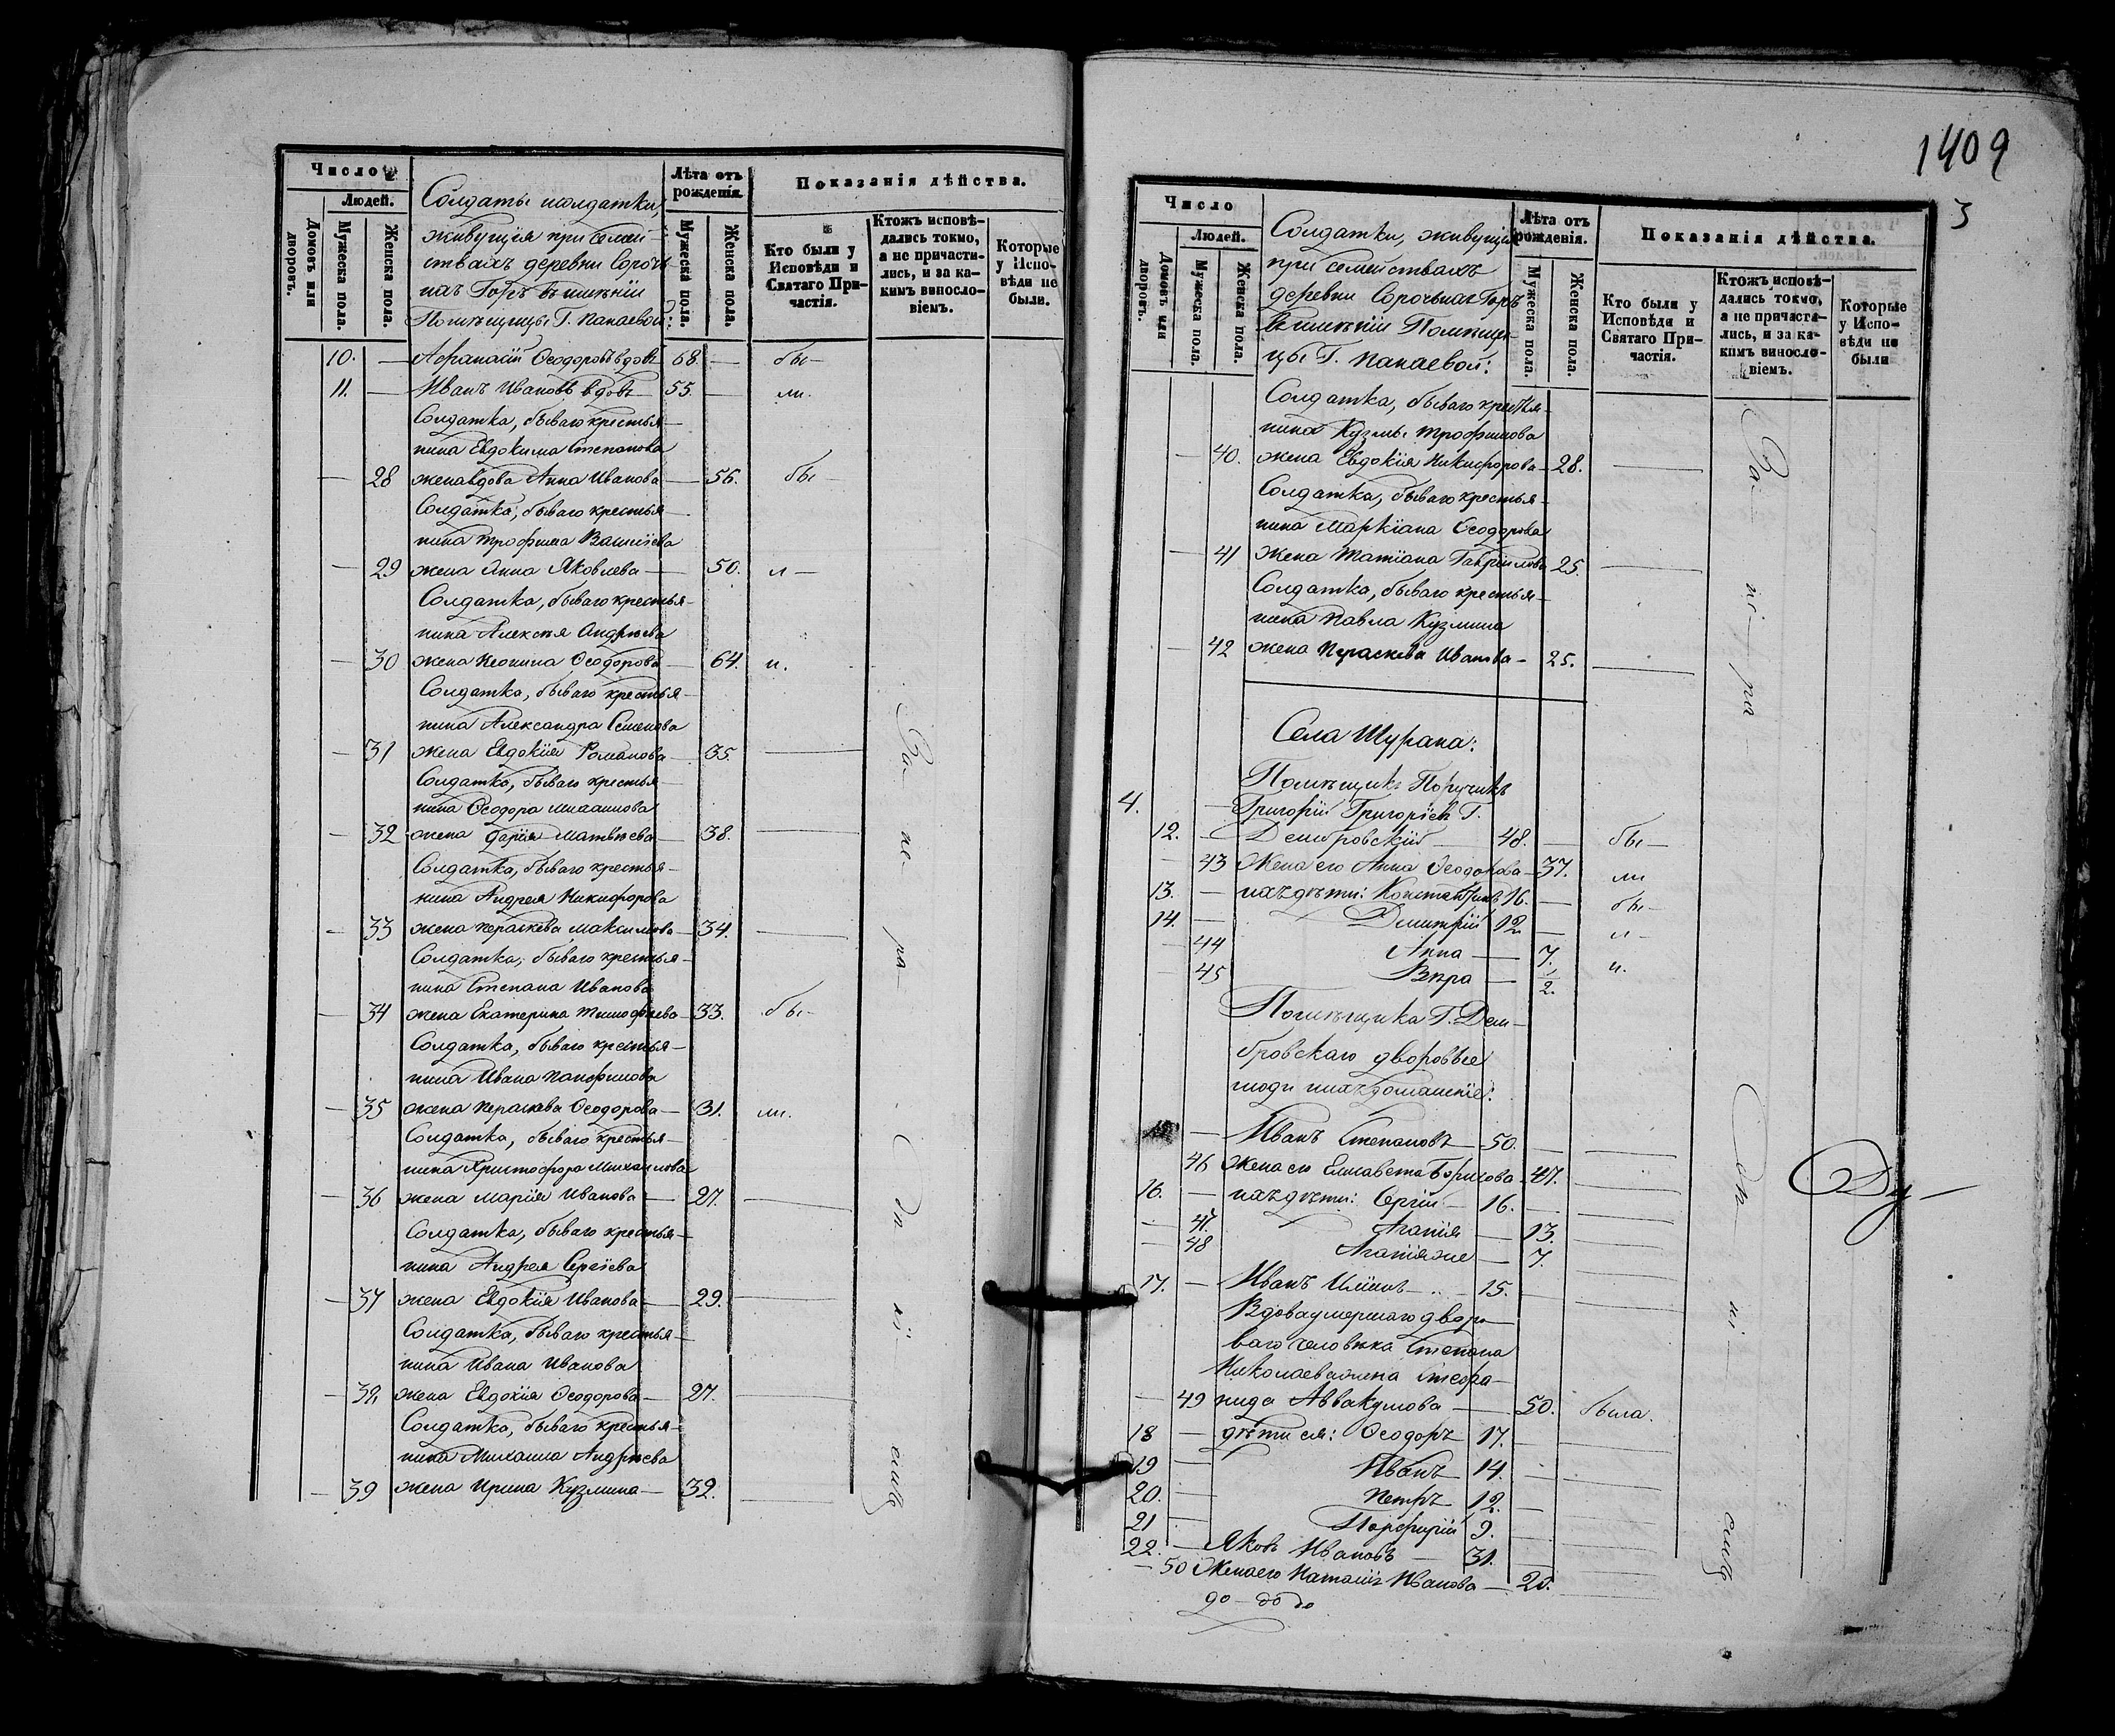 Число
Людей.
Домовъ или дворовъ.
Мужеска пола.
Женска пола.
Солдаты исолдатки,
живущія при семей-
ствахъ деревни Сорочь-
ихъ Горъ въ имѣніи
Помѣщицы Г. Панаевой:
Лѣта отъ рожденія.
Мужеска пола.
Женска пола.
Показанія дѣйства.
Кто были у Исповѣди и Святаго При-частія.
Ктожъ исповѣ-дались токмо, а не причасти-лись, и за ка-кимъ винослo-віемъ.
Которые у Испо-вѣди не были.
10. — Афанасій Ѳеодоровъ вдовъ 68. — бы-
11. — Иванъ Ивановъ вдовъ 55. — ли.
Солдатка, бываго крестья-
нина Евдокима Степанова
— 28 женавдова Анна Иванова — 56. бы-
Солдатка, бываго крестья-
нина Трофима
— 29 жена Анна Яковлева — 50. л-
Солдатка, бываго крестья-
нина Алексѣя Андреева
— 30 жена Ѳеодорова — 64. и.
Солдатка, бываго крестья-
нина Александра Семенова
— 31 жена Евдокія Романова — 35.
Солдатка, бываго крестья-
нина Ѳеодора Михаилова
— 32 жена Дарія Матвѣева — 38.
Солдатка, бываго крестья-
нина Андрея Никифорова
— 33 жена Параскева Максимова — 34.
Солдатка, бываго крестья-
нина Степана Иванова
— 34 жена Екатерина Тимофѣева — 33. бы-
Солдатка, бываго крестья-
нина Ивана Панфилова
— 35 жена Параскева Ѳеодорова — 31. ли.
Солдатка, бываго крестья-
нина Христофора Михаилова
— 36 жена Марія Иванова — 27.
Солдатка, бываго крестья-
нина Андрея Сергіева
— 37 жена Евдокія Иванова — 29.
Солдатка, бываго крестья-
нина Ивана Иванова
— 38 жена Евдокія Ѳеодорова — 27.
Солдатка, бываго крестья-
нина Михаила Андреева
— 39 жена Ирина Кузмина — 32.
За- не- ра-
1409
3
Число
Людей.
Домовъ или дворовъ.
Мужеска пола.
Женска пола.
Солдатки, живущія
при семействахъ
деревни Сорочьихъ Горъ
въ имѣніи Помѣщи-
цы Г. Панаевой:
Лѣта отъ рожденія.
Мужеска пола.
Женска пола.
Показанія дѣйства.
Кто были у Исповѣди и Святаго При-частія.
Ктожъ исповѣ-дались токмо, а не причасти-лись, и за ка-кимъ винослo-віемъ.
Которые у Испо-вѣди не были
Солдатка, бываго крестья-
нина Кузмы Трофимова
— 40. жена Евдокія Никифорова — 28.
Солдатка, бываго крестья-
нина Маркіана Ѳеодорова
— 41 жена Татіана Гавріилова 25.
Солдатка, бываго крестья-
нина Павла Кузмина
— 42 жена Параскева Иванова — 25.
Села Шурана:
Помѣщикъ Поручикъ
4. — Григорій Григоріевъ Г.
12. — Дембровскій — 48. — бы-
— 43 Жена его Анна Ѳеодорова — 37. ли
13. — ихъ дѣти: Константинъ 16. — бы-
14. — Димитрій 12 — л-
— 44 Анна — 7. и.
— 45 Вѣра — 1/2.
Помѣщика Г. Дем-
бровскаго дворовые
люди ихъ домашніе:
15 — Иванъ Степановъ — 50. —
46 Жена его Елисавета Борисова 47.
16. — ихъ дѣти: Сергій — 16. —
— 47. Агапія — 13.
— 48 Агапія же — 7.
17. — Иванъ — 15. —
Вдова умершаго дворо-
ваго человѣка Степана
Николаева жена Стефа-
— 49 нида Аввакумова — 50. была.
18 — дѣти ея: Ѳеодоръ 17. —
19 — Иванъ 14. —
20. — Петръ 12. —
21 — Порфирій 9. —
22. — Яковъ Ивановъ — 31. —
— 50 Жена его Наталія Иванова — 26.
За- не- ра-